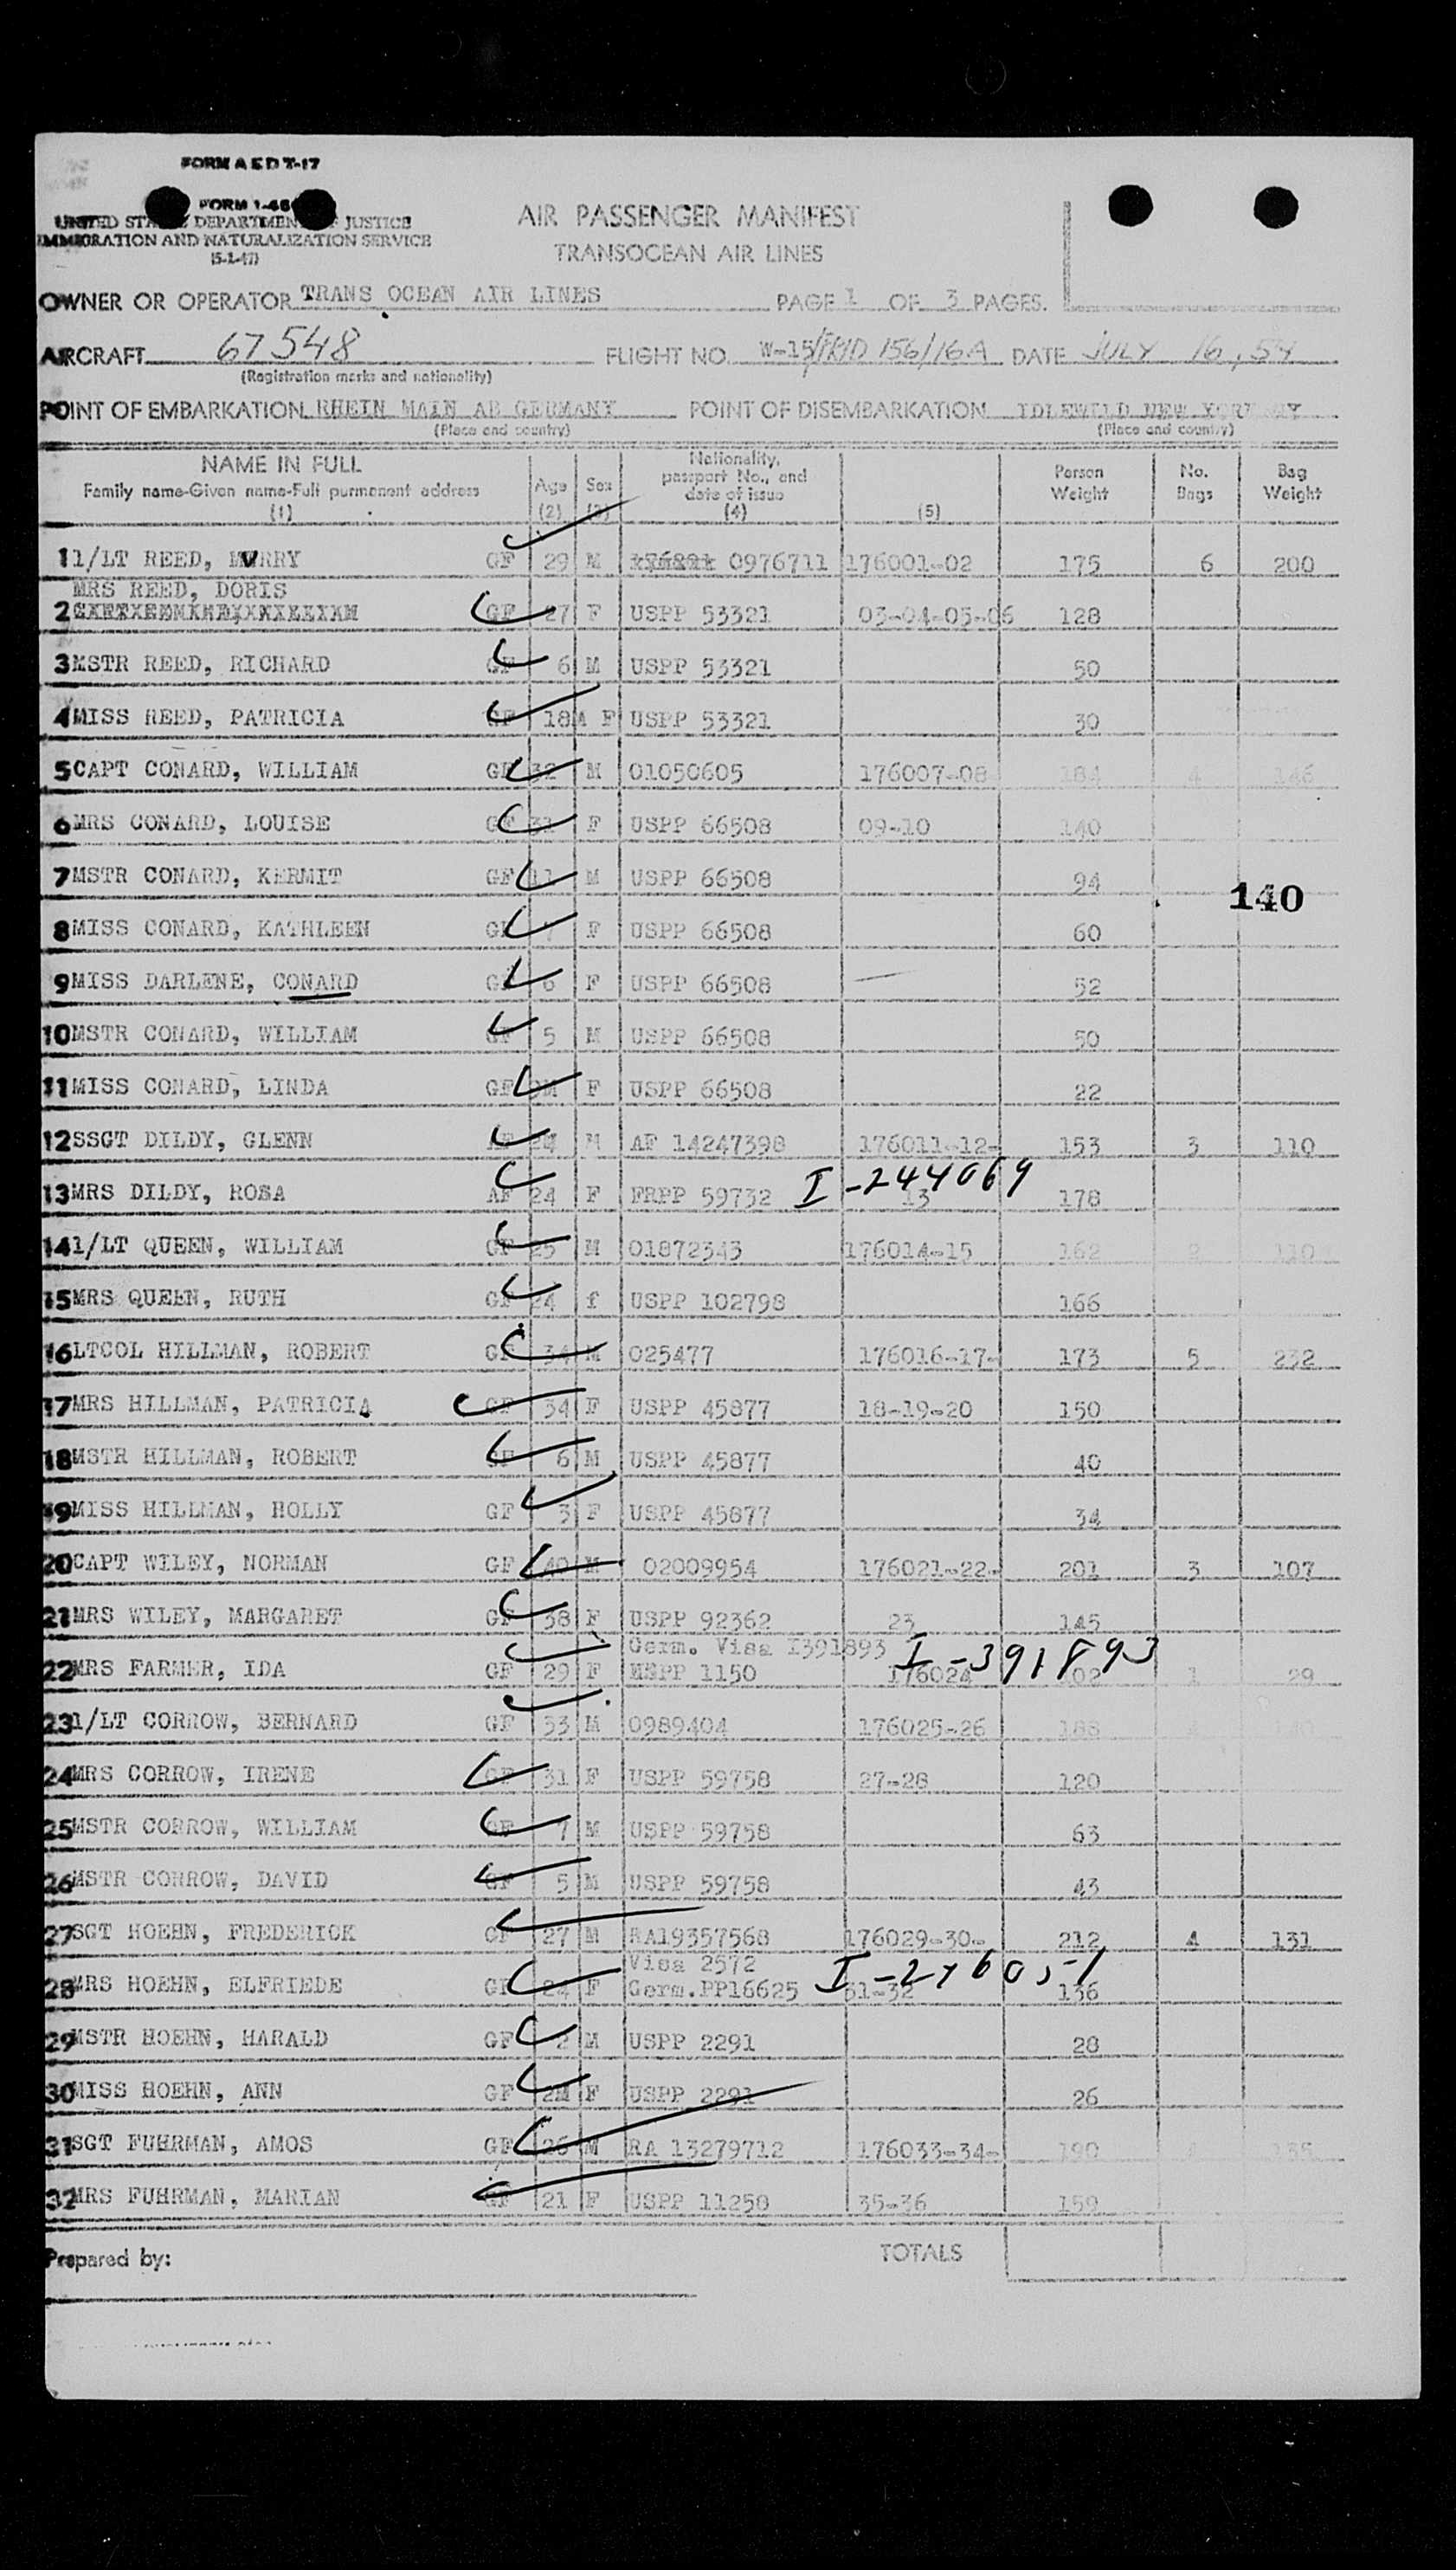 FORM A E D T-17
FORM 1-46
UNITED STA DEPARTMEN JUSTICE
IMMIGRATION AND NATURALIZATION SERVICE
(5-1-47)
AIR PASSENGER MANIFEST
TRANSOCEAN AIR LINES
OWNER OR OPERATOR TRANS OCEAN AIR LINES PAGE 1 OF 3 PAGES.
AIRCRAFT 67548 FLIGHT NO. W-15/ 156/16A DATE JULY 16, 54
(Registration marks and nationality)
POINT OF EMBARKATION RHEIN MAIN AB GERMANY POINT OF DISEMBARKATION IDLEWILD NEW YORK NY
(Place and country) (Place and country)
NAME IN FULL Family name-Given name-Full purmanent address (1) Age (2) Sex (3) Nationality, passport No., and date of issue (4) (5) Person Weight No. Bags Bag Weight
1 1/LT REED, MURRY GF 29 M 0976711 176001-02 175 6 200
MRS REED, DORIS
2 GF 27 F USPP 53321 03-04-05-06 128
3 MSTR REED, RICHARD GF 6 M USPP 53321 50
4 MISS REED, PATRICIA GF 18M F USPP 53321 30
5 CAPT CONARD, WILLIAM GF 32 M 01050605 176007-08 184 4 146
6 MRS CONARD, LOUISE GF 31 F USPP 66508 09-10 140
7 MSTR CONARD, KERMIT GF 11 M USPP 66508 94
140
8 MISS CONARD, KATHLEEN GF 7 F USPP 66508 60
9 MISS DARLENE, CONARD GF 6 F USPP 66508 52
10 MSTR CONARD, WILLIAM GF 5 M USPP 66508 50
11 MISS CONARD, LINDA GF F USPP 66508 22
12 SSGT DILDY, GLENN AF 24 M AF 14247398 176011-12- 153 3 110
13 MRS DILDY, ROSA AF 24 F FRPP 59732 I-244069 13 178
14 1/LT QUEEN, WILLIAM GF 25 M 01872343 176014-15 162 2 110
15 MRS QUEEN, RUTH GF 24 f USPP 102798 166
16 LTCOL HILLMAN, ROBERT GF 34 M 025477 176016-17- 173 5 232
17 MRS HILLMAN, PATRICIA GF 34 F USPP 45877 18-19-20 150
18 MSTR HILLMAN, ROBERT GF 6 M USPP 45877 40
19 MISS HILLMAN, HOLLY GF 3 F USPP 45877 34
20 CAPT WILEY, NORMAN GF 40 M 02009954 176021-22- 201 3 107
21 MRS WILEY, MARGARET GF 38 F USPP 92362 23 145
Germ. Visa I391893 I-391893
22 MRS FARMER, IDA GF 29 F 1150 176024 102 1 29
23 1/LT CORROW, BERNARD GF 33 M 0989404 176025-26 188
24 MRS CORROW, IRENE GF 31 F USPP 59758 27-28 120
25 MSTR CORROW, WILLIAM GF 7 M USPP 59758 63
26 MSTR CORROW, DAVID GF 5 M USPP 59758 43
27 SGT HOEHN, FREDERICK GF 27 M RA19357568 176029-30- 212 4 131
Visa 2572 I-276051
28 MRS HOEHN, ELFRIEDE GF 24 F Germ.PP16625 31-32 136
29 MSTR HOEHN, HARALD GF 2 M USPP 2291 28
30 MISS HOEHN, ANN GF 2M F USPP 2291 26
31 SGT FUHRMAN, AMOS GF 26 M RA 13279712 176033-34- 190 4 135
32 MRS FUHRMAN, MARIAN GF 21 F USPP 11258 35-36 159
Prepared by: TOTALS